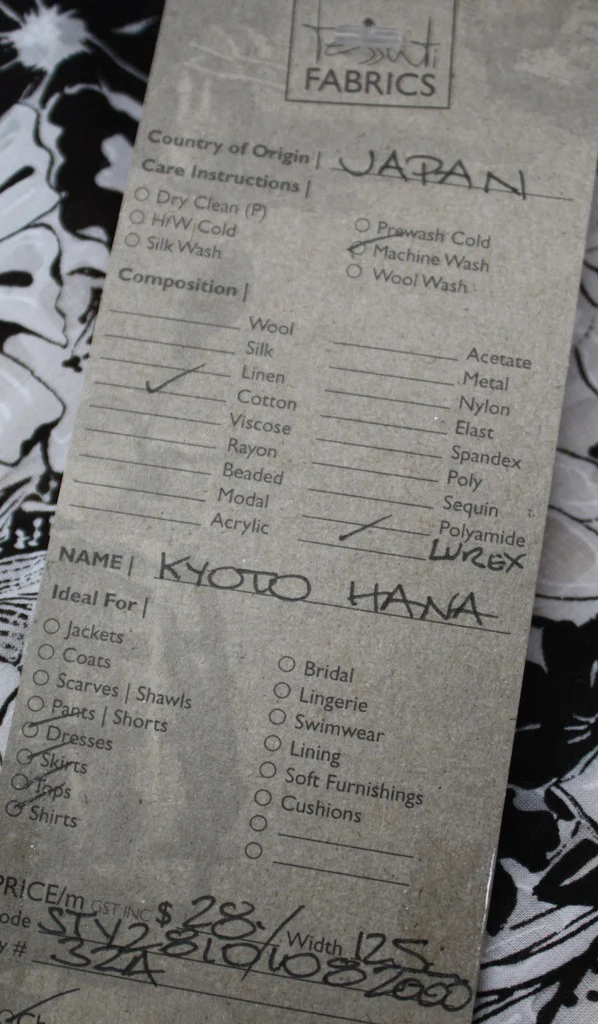 Tessuti
FABRICS
Country of Origin | JAPAN
Care Instructions |
Dry Clean (P)
H/W Cold
Silk Wash
Prewash Cold
Machine Wash
Wool Wash
Composition |
Wool
Silk
Linen
Cotton
Viscose
Rayon
Beaded
Modal
Acrylic
Acetate
Metal
Nylon
Elast
Spandex
Poly
Sequin
Polyamide
LUREX
NAME | KYOTO HANA
Ideal For |
Jackets
Coats
Scarves | Shawls
Pants | Shorts
Dresses
Skirts
Tops
Shirts
Bridal
Lingerie
Swimwear
Lining
Soft Furnishings
Cushions
PRICE/m GST INC $ 28./ Width 125
ode
y # 32A